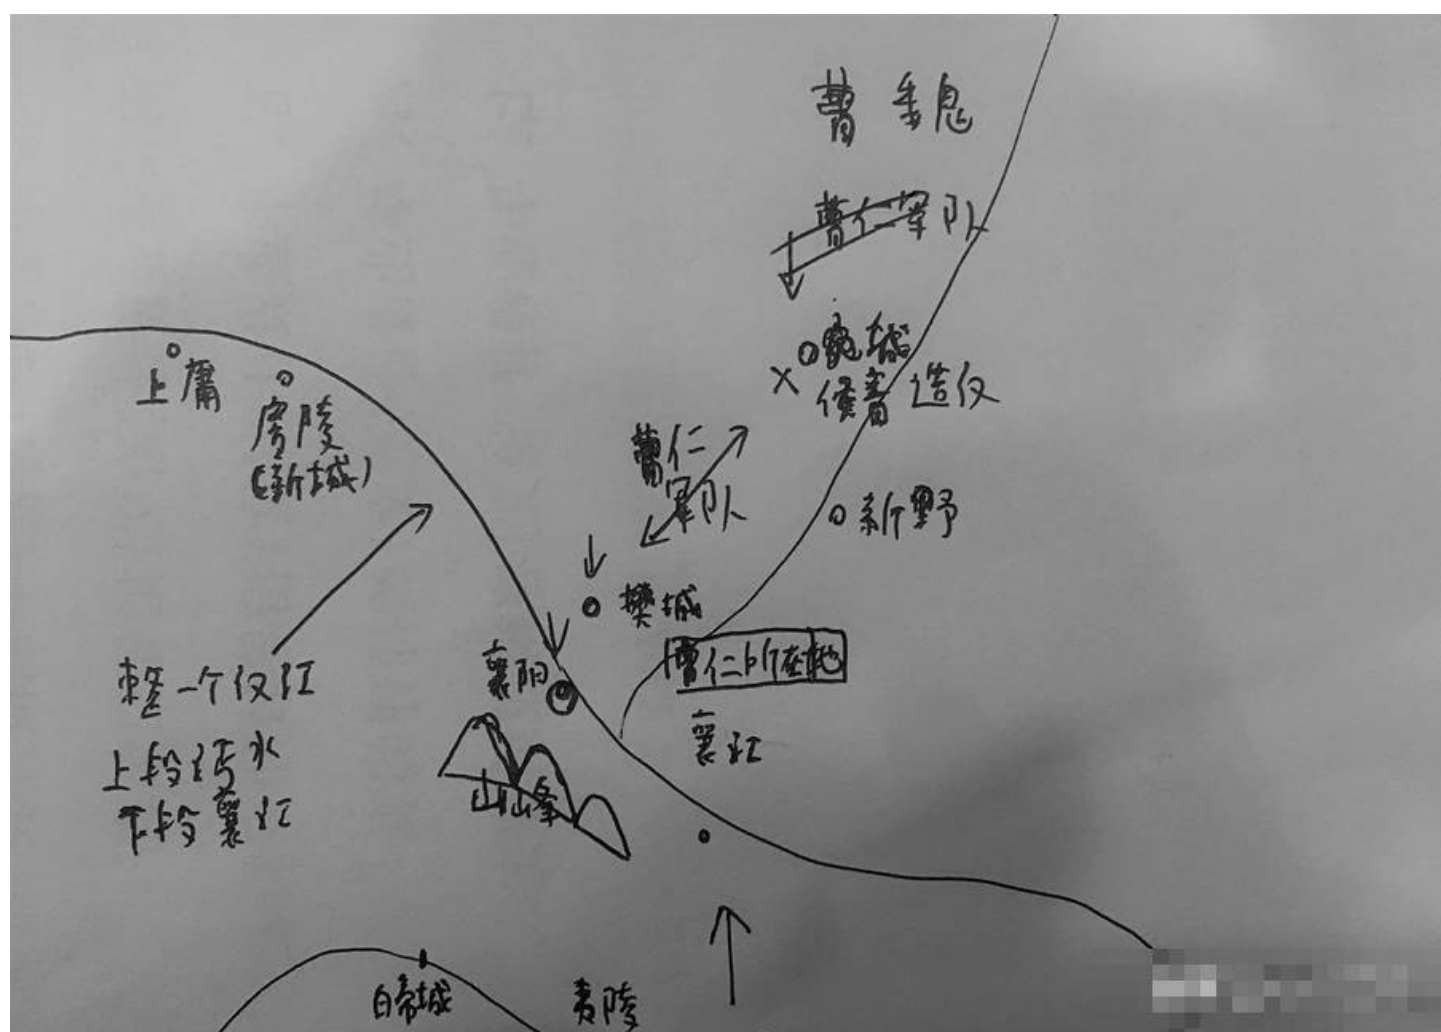 曹魏
曹仁军队
宛城
侯音造反
上庸
房陵
(新城)
曹仁
军队
新野
樊城
襄阳
曹仁所在地
襄江
整个汉江
上段沔水
下段襄江
山峰
白帝城
夷陵